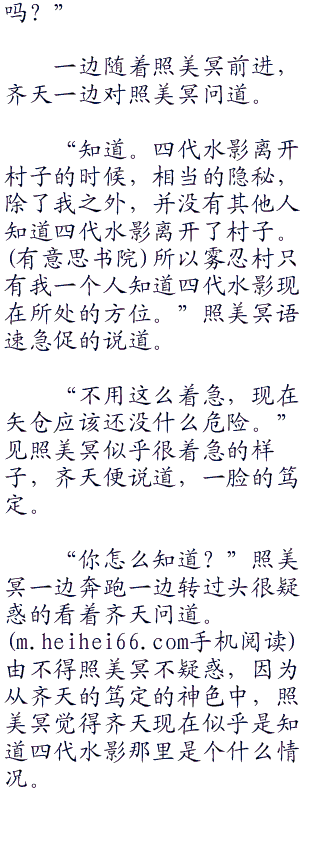 吗？”
一边随着照美冥前进，
齐天一边对照美冥问道。
“知道。四代水影离开
村子的时候，相当的隐秘，
除了我之外，并没有其他人
知道四代水影离开了村子。
(有意思书院)所以雾忍村只
有我一个人知道四代水影现
在所处的方位。”照美冥语
速急促的说道。
“不用这么着急，现在
矢仓应该还没什么危险。”
见照美冥似乎很着急的样
子，齐天便说道，一脸的笃
定。
“你怎么知道？”照美
冥一边奔跑一边转过头很疑
惑的看着齐天问道。
(m.heihei66.com手机阅读)
由不得照美冥不疑惑，因为
从齐天的笃定的神色中，照
美冥觉得齐天现在似乎是知
道四代水影那里是个什么情
况。